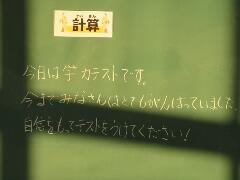 計算
今日は学力テストです。
今までみなさんはとてもがんばっていました。
自信をもってテストをうけてください！